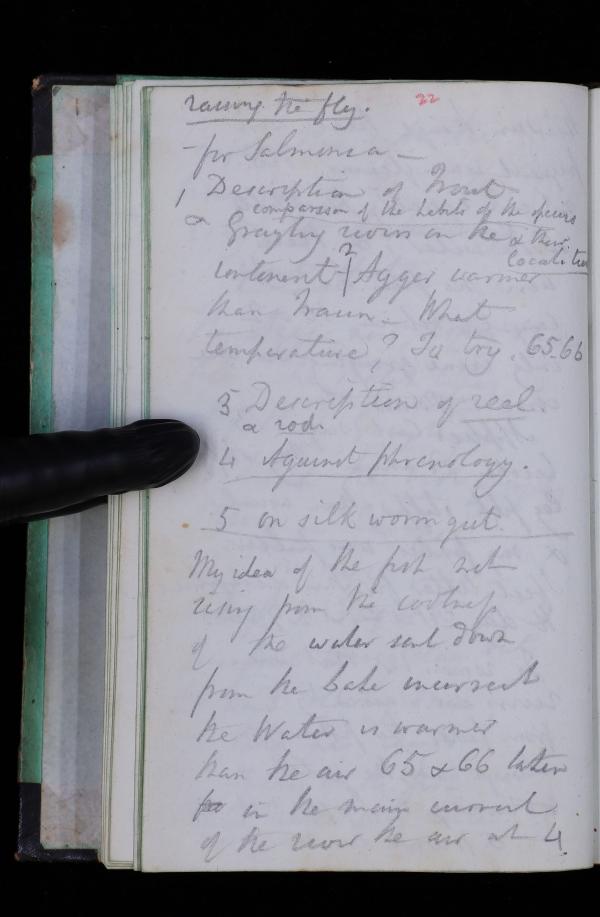 raising the fly. 22
- for Salmonia -
1 Description of Trout
comparison of the habits of the species
& Grayling rivers on the & their
localities
continent - 2 Agger warmer
than Traun - What
temperature? To try. 65.66
3 Description of reel.
& rod.
4 Against phrenology.
5 on silk worm gut.
My idea of the fish not
rising from the coolness
of the water sent down
from the lake incorrect
the Water is warmer
than the air 65 & 66 later
in the main current
of the river the air at 4.